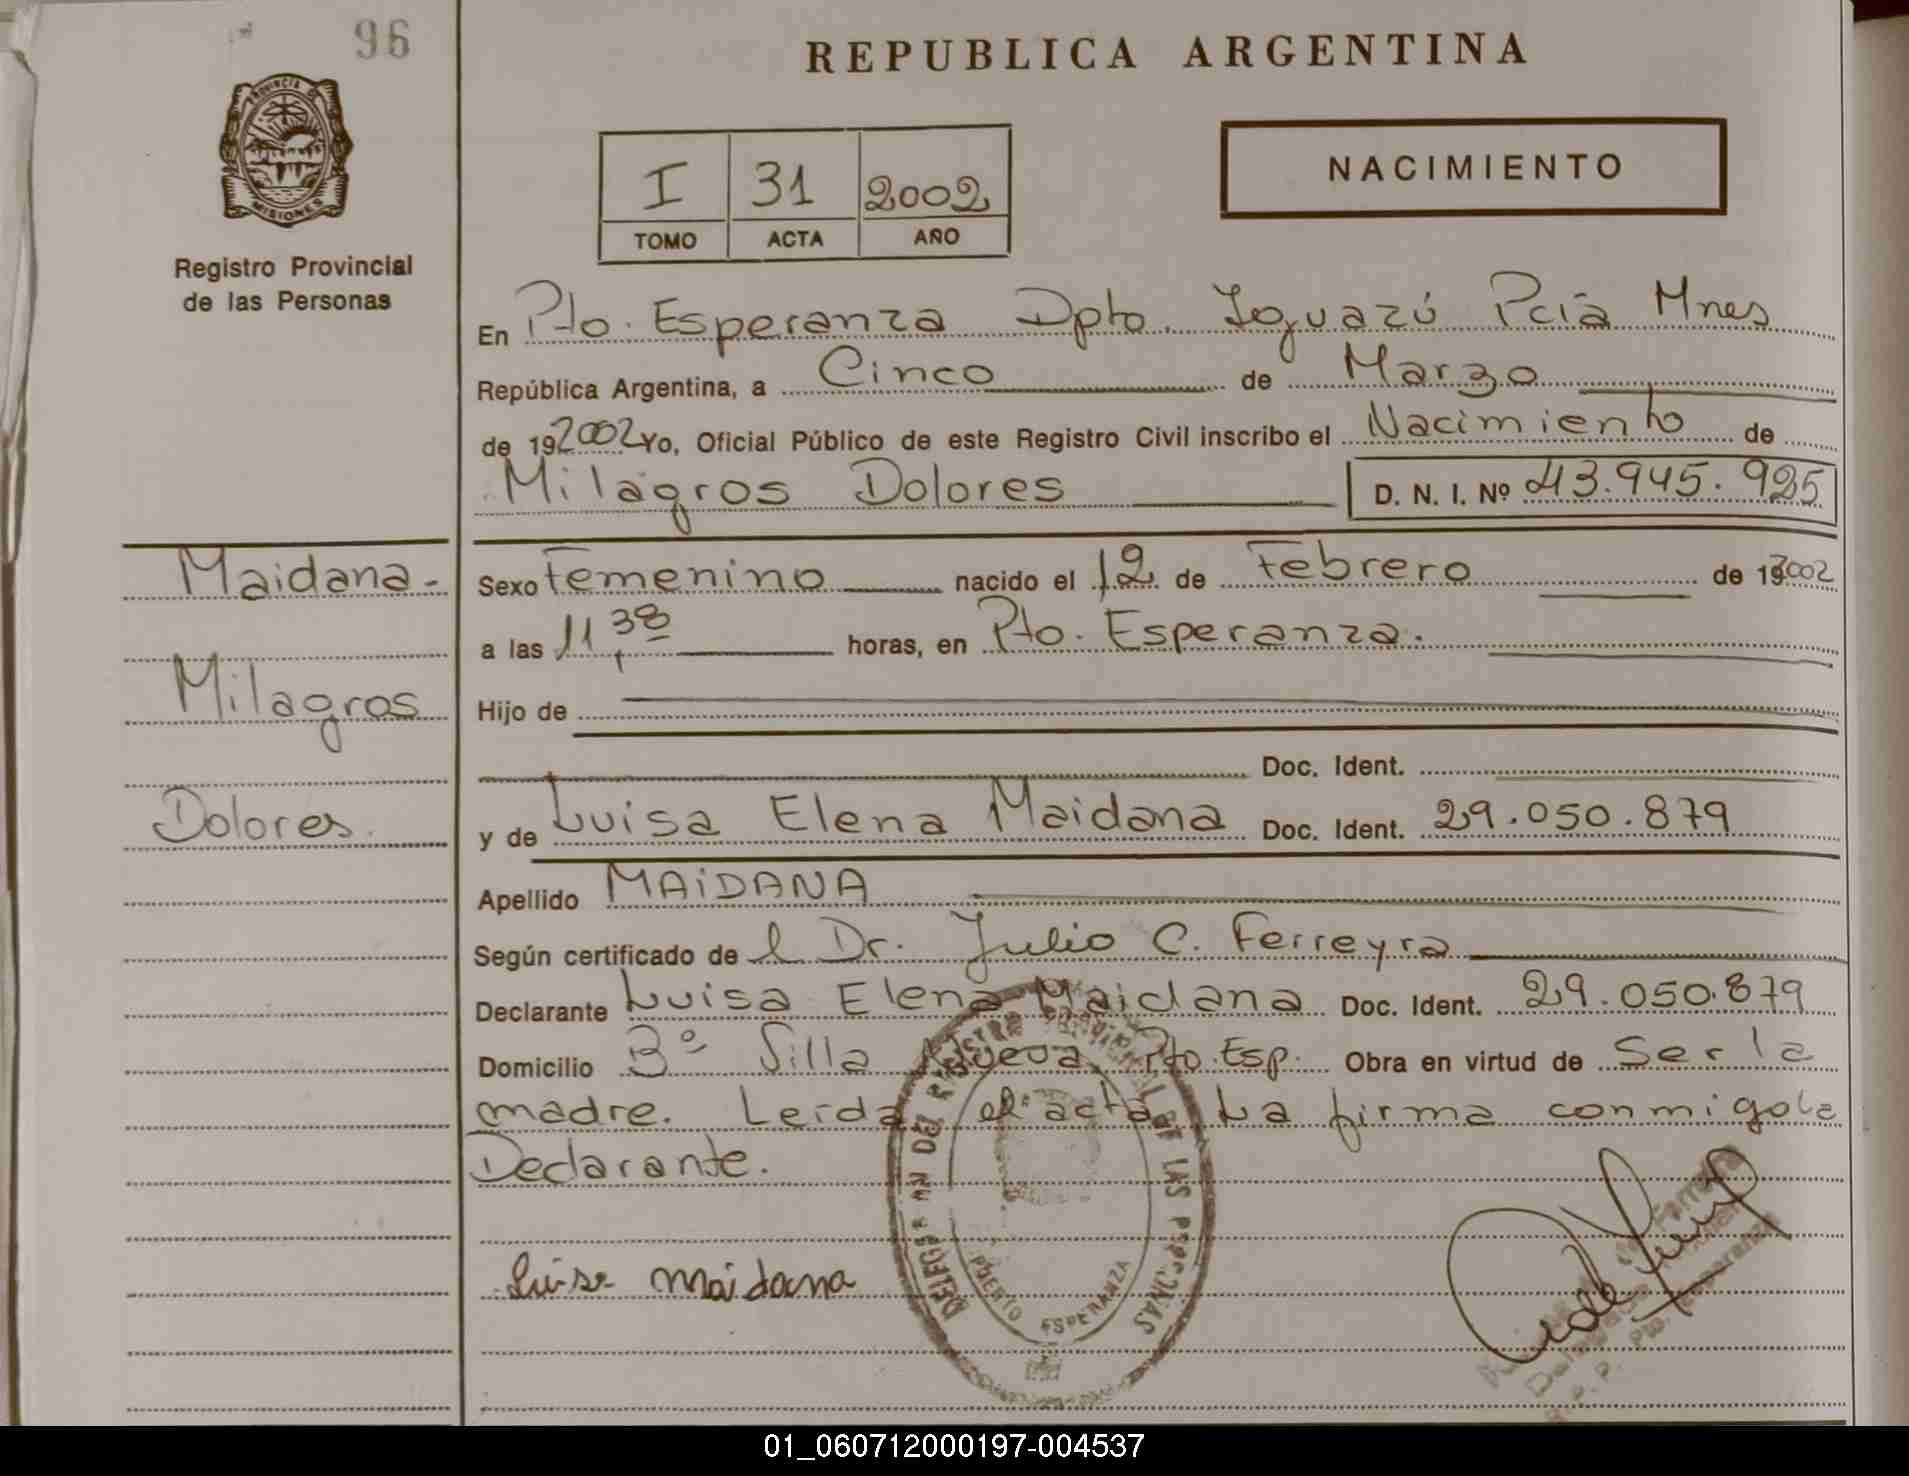 96
REPUBLICA ARGENTINA
PROVINCIA D
MISIONES
Registro Provincial
de las Personas
I 31 2002
TOMO ACTA AÑO
NACIMIENTO
En Pto. Esperanza Dpto. Iguazú Pcia Mnes
República Argentina, a Cinco de Marzo
de 192002 Yo, Oficial Público de este Registro Civil inscribo el Nacimiento de
Milagros Dolores D. N. I. Nº 43.945.925
Maidana- Sexo Femenino nacido el 12 de Febrero de 192002
a las 11,38 horas, en Pto. Esperanza.
Milagros Hijo de
Doc. Ident.
Dolores. y de Luisa Elena Maidana Doc. Ident. 29.050.879
Apellido MAIDANA
Según certificado de l Dr. Julio C. Ferreyra
Declarante Luisa Elena Maidana Doc. Ident. 29.050.879
Domicilio Bº Villa Nueva Pto. Esp. Obra en virtud de Ser la
madre. Leida el acta La firma conmigo la
Declarante.
Luisa Maidana
DEL REGISTRO PROVINCIAL DE LAS PERSONAS
PUERTO ESPERANZA
Pto. Esperanza
01_060712000197-004537